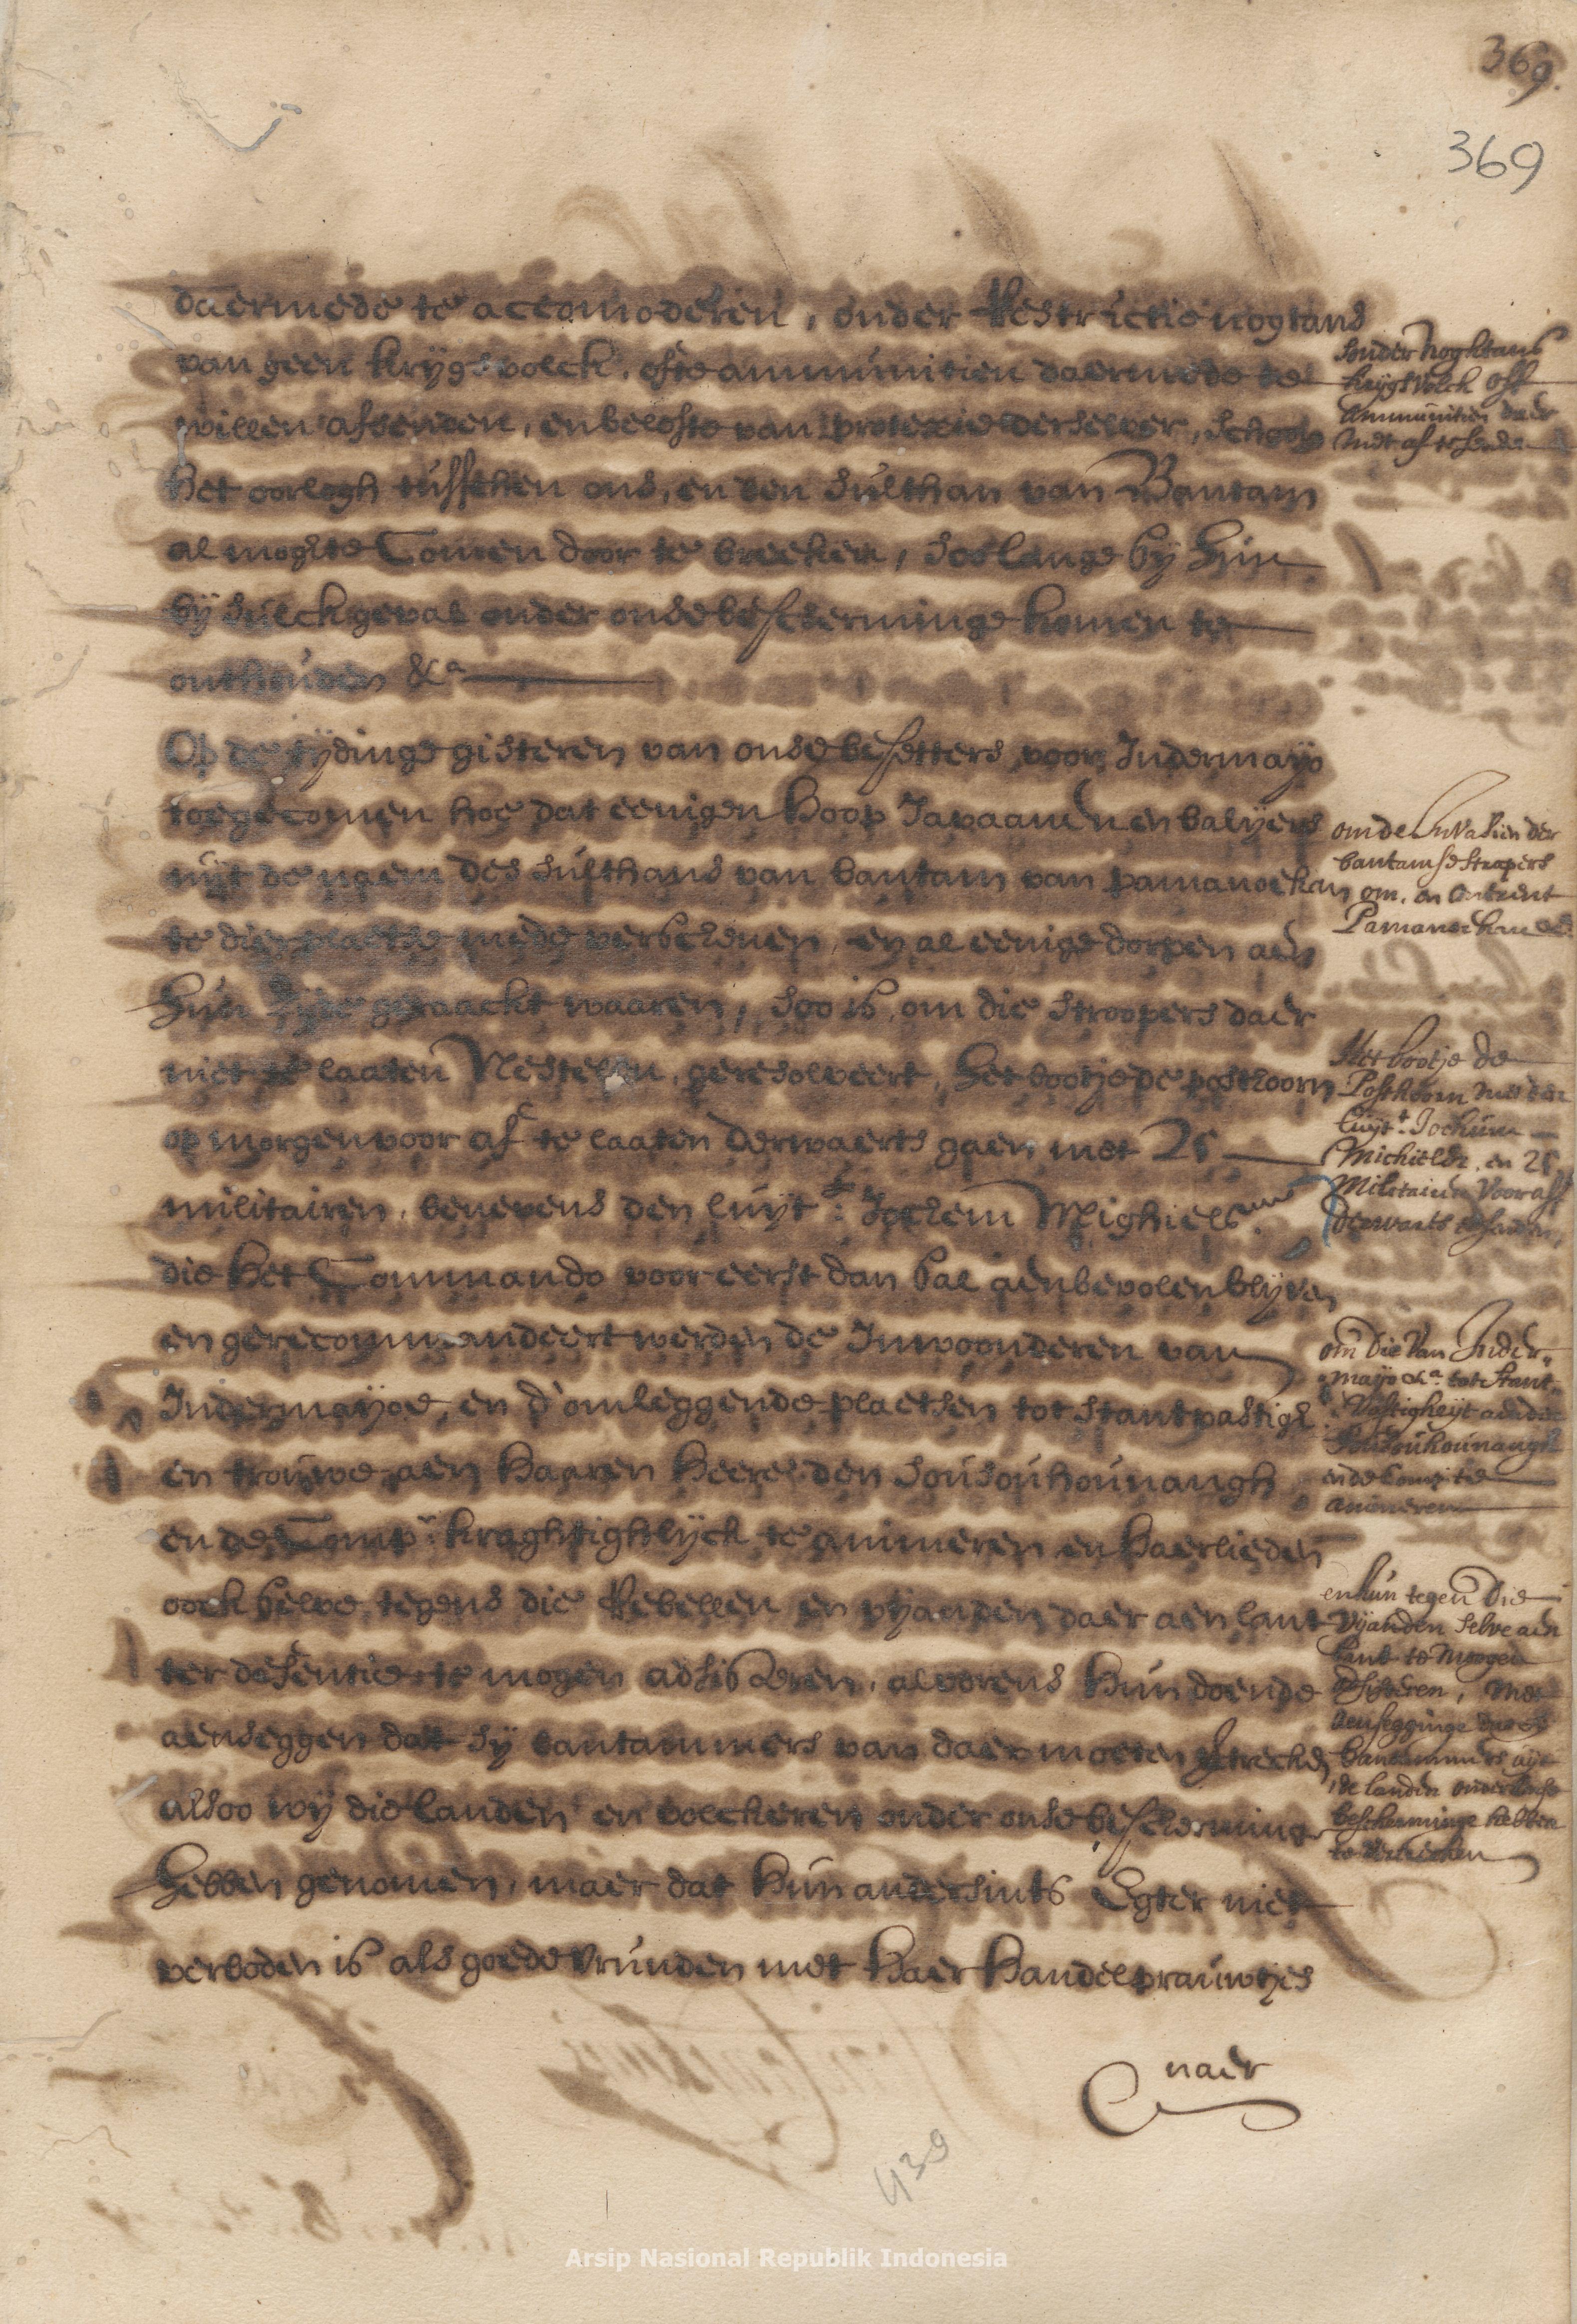 369.
369
daermede te accomoderen, onder Restrictie nogtans
van geen krijgsvolck, ofte ammunitien daermede te
willen afsenden, en belofte van protexie derselver, schoon
het oorlogh tusschen ons, en den Sulthan van Bantam
al moghte Comen door te breeken, soolange sy hun
bij sulck geval onder onse bescherminge komen te
onthouden &a
Op de tijdinge gisteren van onse besetters voor Indermayo
toegecomen hoe dat eenigen hoop Javaanen en balijers
uijt de naem des sulthans van bantam van pamanoekan
te dier plaetse mede verschenen, en al eenige dorpen aen
hun zijde geraackt waaren, soo is, om die stroopers daer
niet te laaten Nestelen, geresolveert, het bootje de posthoorn
op morgen voor af te laaten derwaerts gaen met 25
militairen, benevens den luijt.t Jochem Mighiels
die het Commando voor eerst dan sal aenbevolen blijven
en gerecommandeert werden de Inwoonderen van
Indermayoe, en d'omleggende plaetsen tot stantvastigh.t
en trouwe aen haaren heere den Sousouhounangh
en de Comp.e kraghtighlijck te animeren en haerlieden
oock selve tegens die Rebellen en vijanden daer aen lant
ter defentie te mogen adsisteren, alvorens hun doende
aenseggen dat sy bantammers van daer moeten
alsoo wij die landen en volckeren onder onse bescherminge
hebben genomen, maer dat hun andersints Egter niet
verboden is als goede vrunden met haer handelprauwtjes
naer
sonder noghtans
krijgsvolck off
Ammunitien daer
met af te senden
om de Invasien der
bantamse stroopers
om, en Ontrent
Pamanoekan
Het bootje de
Posthoorn met den
luijt.t Jochum
Michielse, en 25
Militairen voor aff
derwaerts te senden,
om die van Inder-
mayo &a. tot stant-
vastigheijt aen den
Sousouhounangh
en de Comp.e te
animeren
en hun tegen die
vijanden selve aen
lant te moogen
adsisteren, met
aensegginge
bantammers uijt
die landen onder onse
bescherminge hebben
te vertrecken
439
Arsip Nasional Republik Indonesia